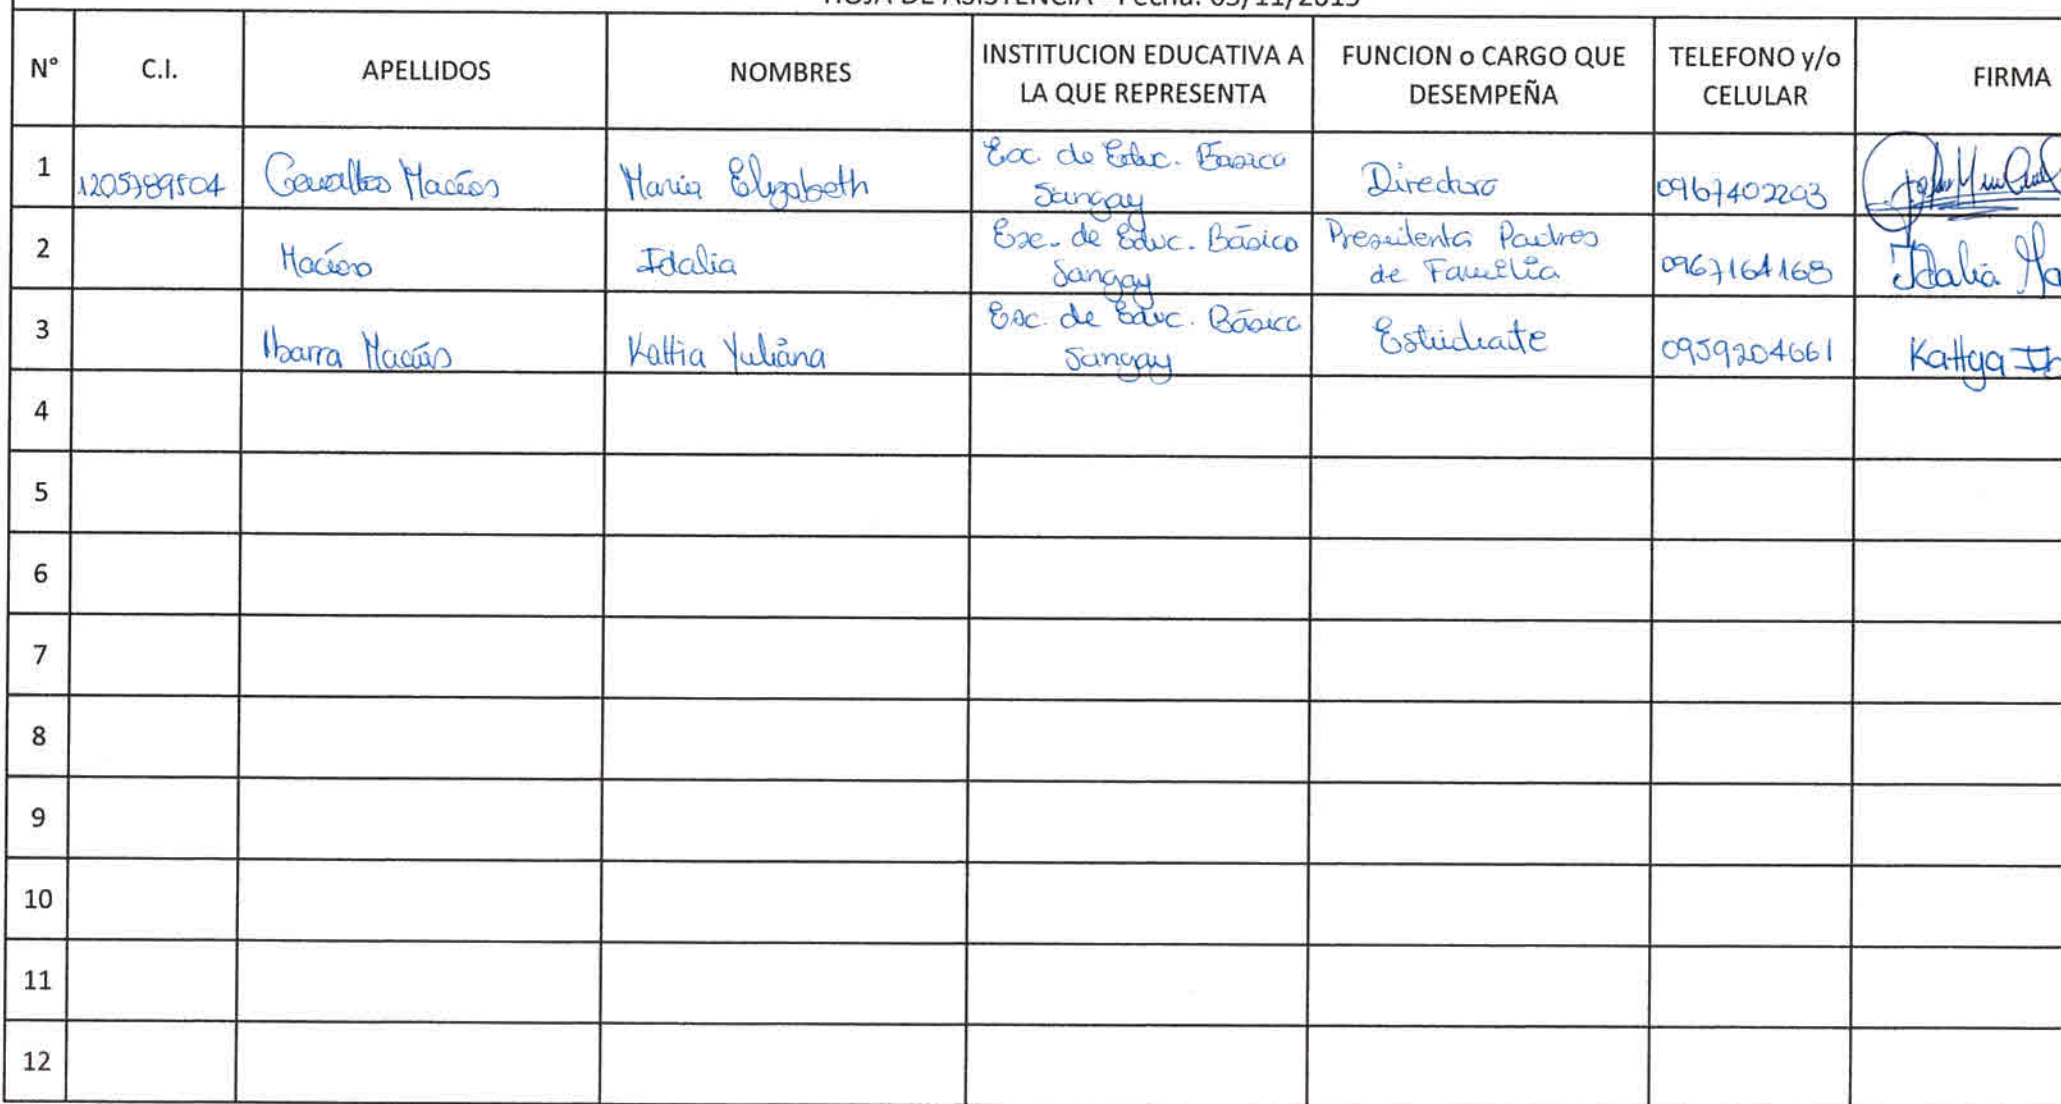 HOJA DE ASISTENCIA - Fecha: 05/11/2015
N° C.I. APELLIDOS NOMBRES INSTITUCION EDUCATIVA A LA QUE REPRESENTA FUNCION o CARGO QUE DESEMPEÑA TELEFONO y/o CELULAR FIRMA
1 1205789504 Cevallos Macías Maria Elizabeth Esc. de Educ. Basica Sangay Directora 0967402203
2 Macías Idalia Esc. de Educ. Básica Sangay Presidenta Padres de Familia 0967164168 Idalia Ma
3 Ibarra Macías Kattia Yuliana Esc. de Educ. Básica Sangay Estudiante 0959204661 Kattya Ib
4
5
6
7
8
9
10
11
12